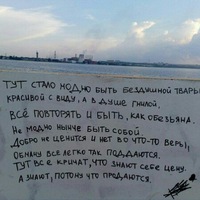 ТУТ СТАЛО МОДНО БЫТЬ БЕЗДУШНОЙ ТВАРЬЮ
КРАСИВОЙ С ВИДУ, А В ДУШЕ ГНИЛОЙ.
ВСЁ ПОВТОРЯТЬ И БЫТЬ, КАК ОБЕЗЬЯНА.
НЕ МОДНО НЫНЧЕ БЫТЬ СОБОЙ.
ДОБРО НЕ ЦЕНИТСЯ И НЕТ ВО ЧТО-ТО ВЕРЫ,
ОБМАНУ ВСЕ ЛЕГКО ТАК ПОДДАЮТСЯ.
ТУТ ВСЕ КРИЧАТ, ЧТО ЗНАЮТ СЕБЕ ЦЕНУ.
А ЗНАЮТ, ПОТОМУ ЧТО ПРОДАЮТСЯ.